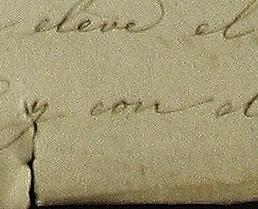 eleve el
y con el